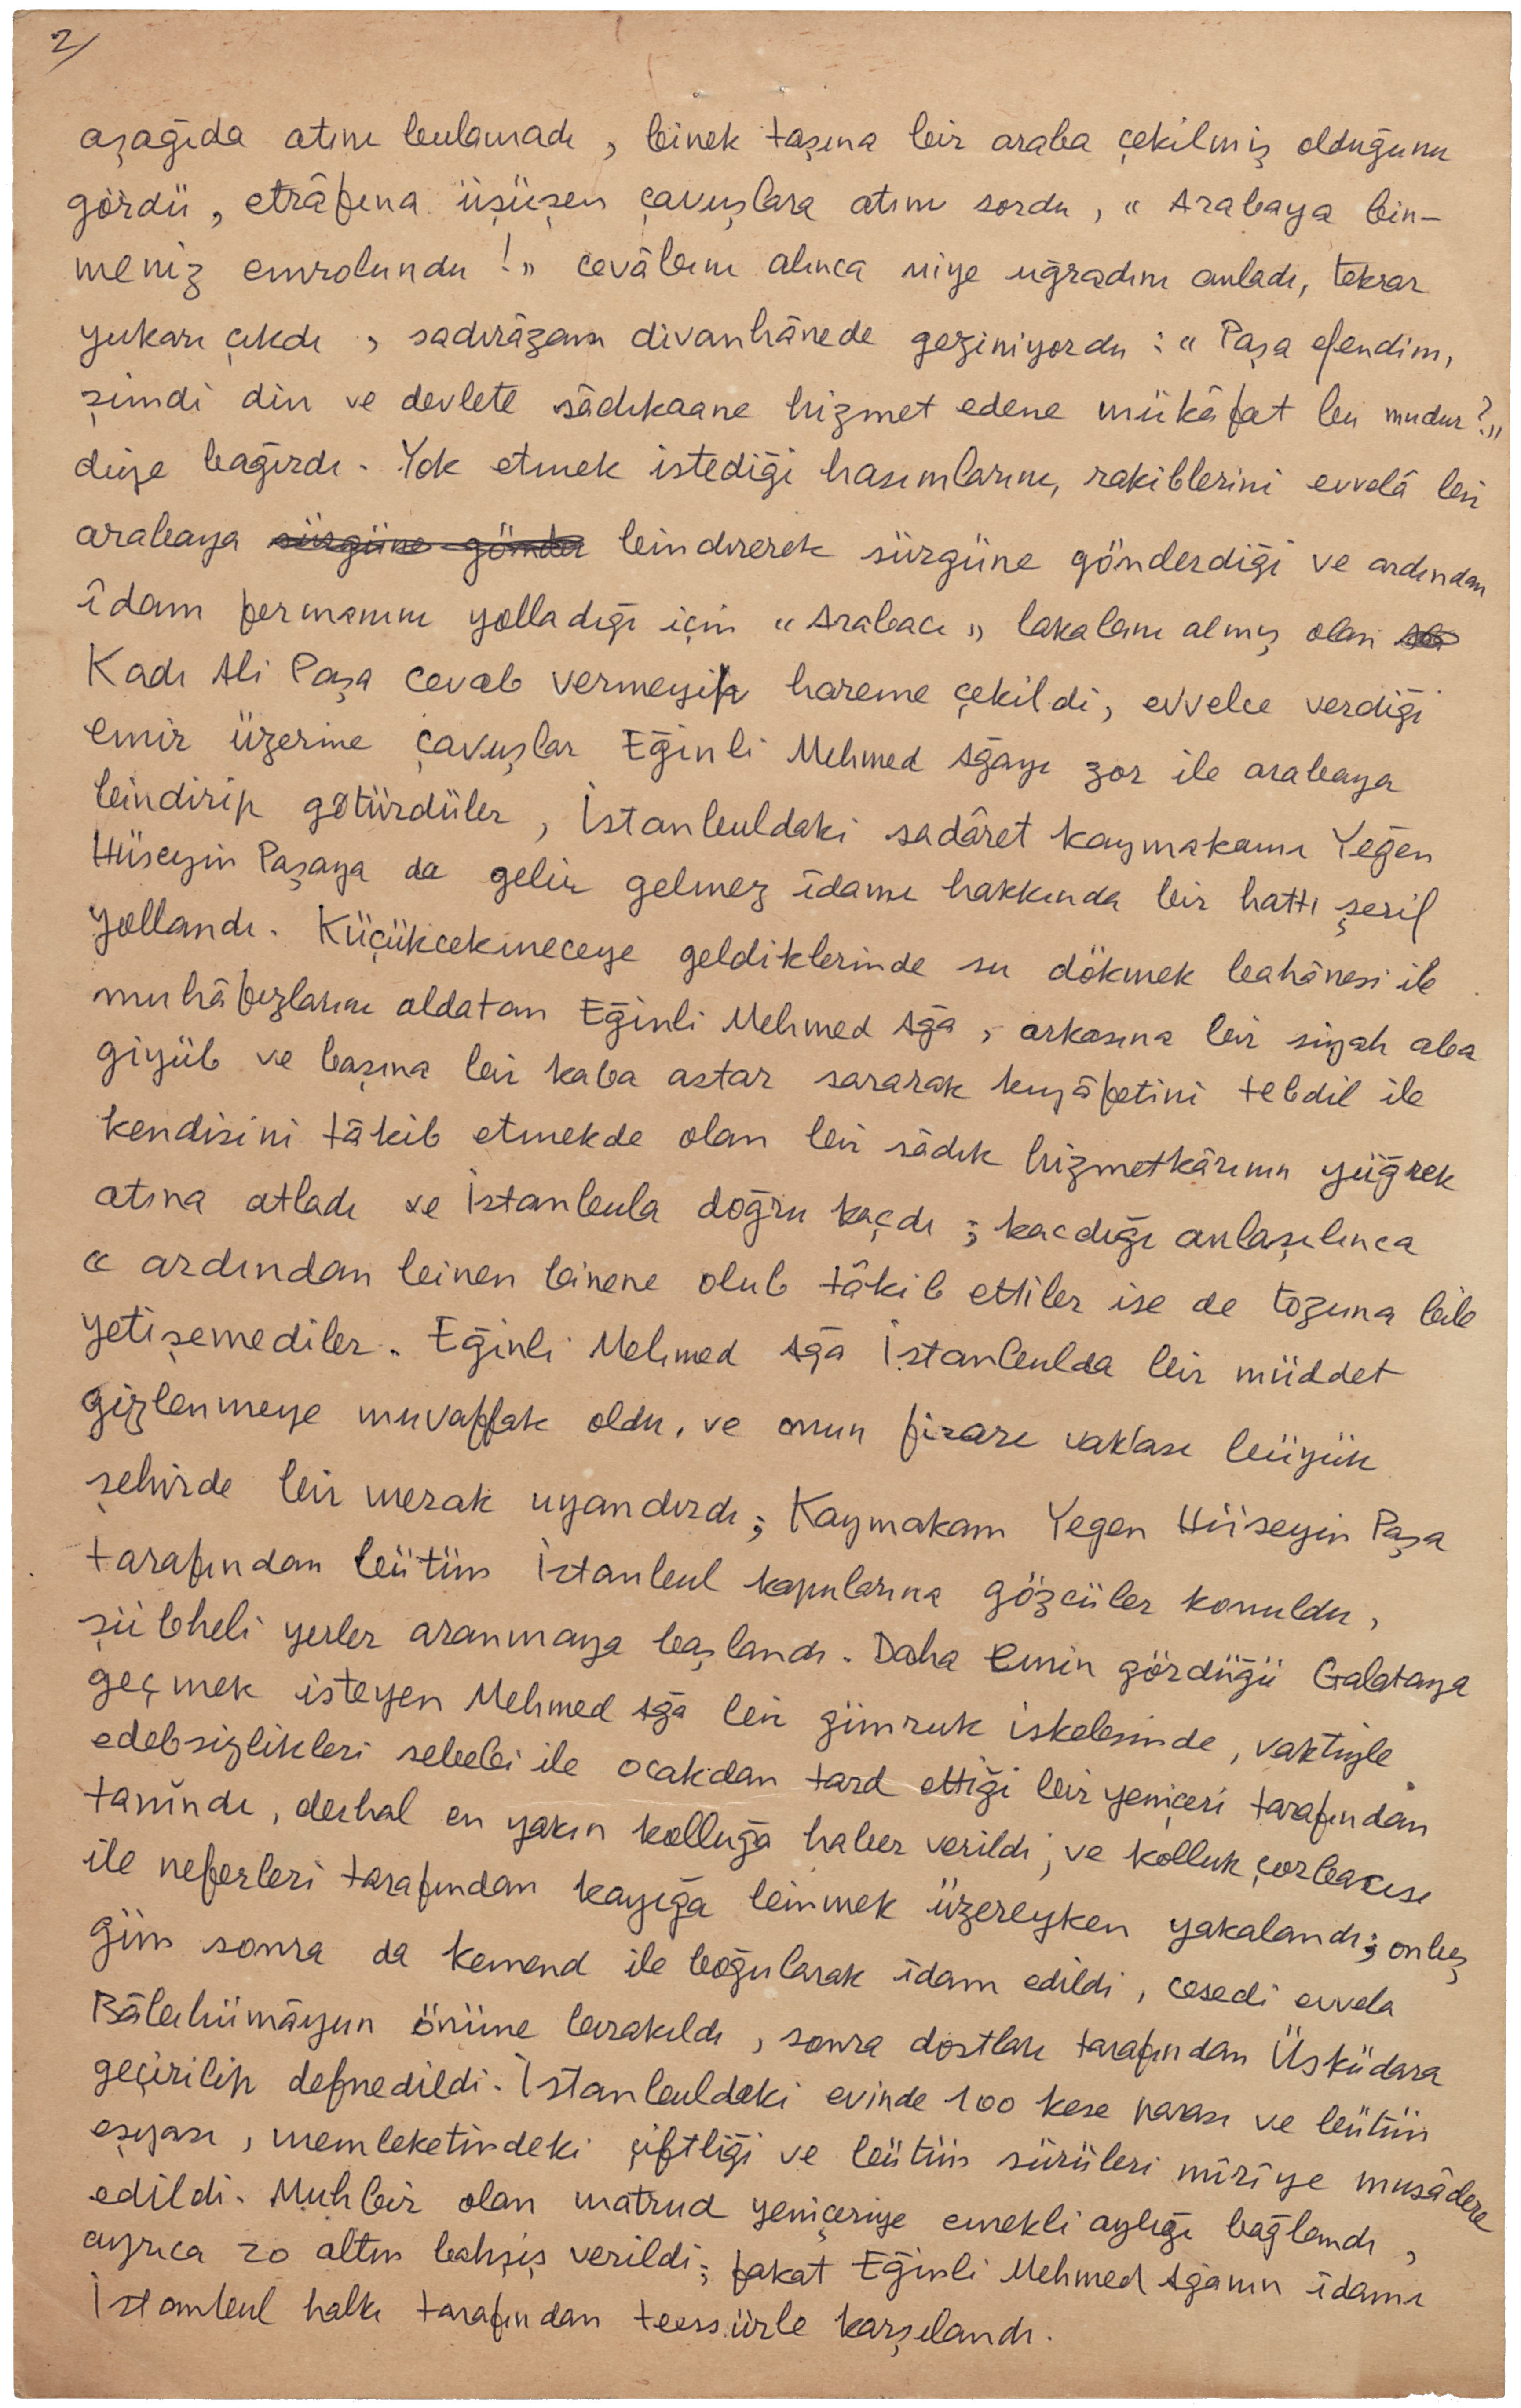 2/
aşağıda atını bulamadı, binek taşına bir araba çekilmiş olduğunu
gördü, etrâfına üşüşen çavuşlara atını sordu, « Arabaya bin-
meniz emrolundu ! » cevâbını alınca niye uğradını anladı, tekrar
yukarı çıkdı, sadırâzam divanhânede geziniyordu : « Paşa efendim,
şimdi din ve devlete sâdıkaane hizmet edene mükâfat bu mudur ? »
diye bağırdı. Yok etmek istediği hasımlarını, rakiblerini evvelâ bir
arabaya sürgüne gönder bindirerek sürgüne gönderdiği ve ardından
îdam fermanını yolladığı için « Arabacı » lakabını almış olan Ali
Kadı Ali Paşa cevab vermeyip hareme çekildi, evvelce verdiği
emir üzerine çavuşlar Eğinli Mehmed Ağayı zor ile arabaya
bindirip götürdüler, İstanbuldaki sadâret kaymakamı Yeğen
Hüseyin Paşaya da gelir gelmez îdamı hakkında bir hattı şerif
yollandı. Küçükcekmeceye geldiklerinde su dökmek bahânesi ile
muhâfızlarını aldatan Eğinli Mehmed Ağa, arkasına bir siyah aba
giyüb ve başına bir kaba astar sararak kıyâfetini tebdil ile
kendisini tâkib etmekde olan bir sâdık hizmetkârının yüğrek
atına atladı ve İstanbula doğru kaçdı ; kacdığı anlaşılınca
« ardından binen binene olub tâkib ettiler ise de tozuna bile
yetişemediler. Eğinli Mehmed Ağa İstanbulda bir müddet
gizlenmeye muvaffak oldu, ve onun firarı vak'ası büyük
şehirde bir merak uyandırdı ; Kaymakam Yegen Hüseyin Paşa
tarafından bütün İstanbul kapularına gözcüler konuldu,
şübheli yerler aranmaya başlandı. Daha emin gördüğü Galataya
geçmek isteyen Mehmed Ağa bir gümruk iskelesinde, vaktiyle
edebsizlikleri sebebi ile ocakdan tard ettiği bir yeniçeri tarafından
tanındı, derhal en yakın kolluğa haber verildi, ve kolluk çorbacısı
ile neferleri tarafından kayığa binmek üzereyken yakalandı ; onbeş
gün sonra da kemend ile boğularak îdam edildi, cesedi evvela
Bâbıhümâyun önüne bırakıldı, sonra dostları tarafından Üsküdara
geçirilip defnedildi. İstanbuldaki evinde 100 kese parası ve bütün
eşyası, memleketindeki çiftliği ve bütün sürüleri mîrîye musâdere
edildi. Muhbir olan matrud yeniçeriye emekli aylığı bağlandı,
ayrıca 20 altın bahşiş verildi ; fakat Eğinli Mehmed Ağanın îdamı
İstanbul halkı tarafından teessürle karşılandı.